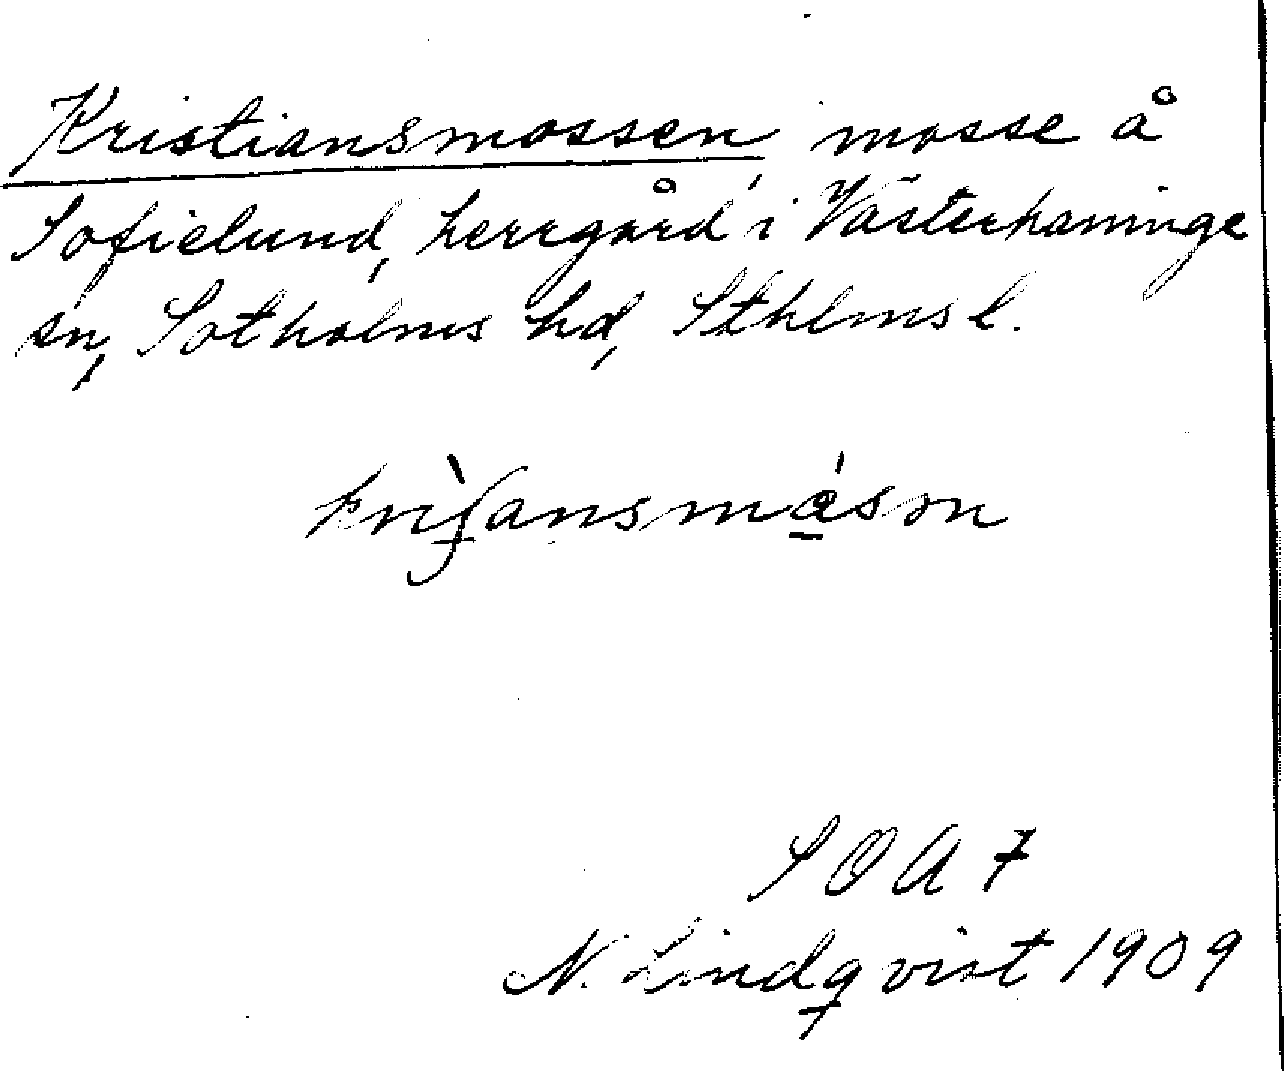 Kristiansmossen, mosse å
Sofielund, herrgård i Västerhaninge
sn, Sotholms hd, Sthlms l.
SOA 7
N. Lindqvist 1909